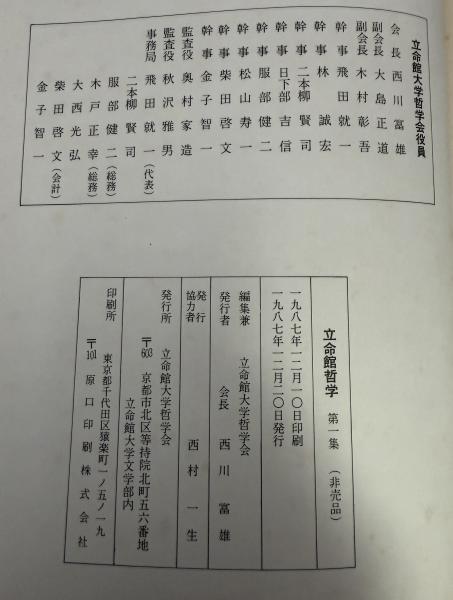 立命館大学哲学会役員
会長 西川富雄
副会長 大島正道
副会長 木村彰吾
幹事 飛田就一
幹事 林誠宏
幹事 二本柳賢司
幹事 日下部吉信
幹事 服部健二
幹事 松山寿一
幹事 柴田啓文
幹事 金子智一
監査役 奥村家造
監査役 秋沢雅男
事務局 飛田就一(代表)
二本柳賢司
服部健二(総務)
木戸正幸(総務)
大西光弘
柴田啓文(会計)
金子智一
立命館哲学 第一集 (非売品)
一九八七年一二月一〇日印刷
一九八七年一二月二〇日発行
編集兼発行者 立命館大学哲学会
会長 西川富雄
発行協力者 西村一生
発行所 立命館大学哲学会
〒603 京都市北区等持院北町五六番地
立命館大学文学部内
印刷所 東京都千代田区猿楽町一ノ五ノ一九
〒101 原口印刷株式会社